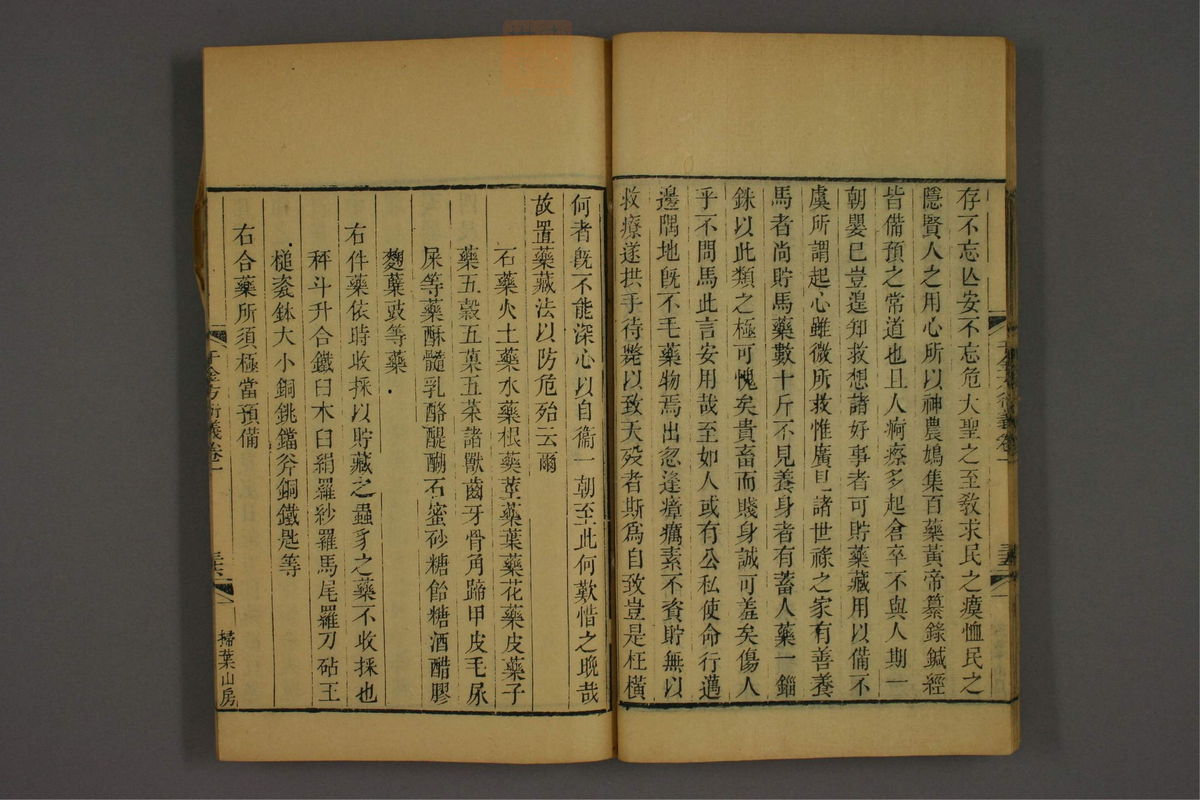 存不忘亾安不忘危大聖之至敎求民之瘼恤民之
隱賢人之用心所以神農鴆集百藥黃帝纂錄鍼經
皆備預之常道也且人痾瘵多起倉卒不與人期一
朝嬰巳豈遑知救想諸好事者可貯藥藏用以備不
虞所謂起心雖微所救惟廣見諸世祿之家有善養
馬者尚貯馬藥數十斤不見養身者有蓄人藥一錙
銖以此類之極可愧矣貴畜而賤身誠可羞矣傷人
乎不問馬此言安用哉至如人或有公私使命行邁
邊隅地旣不毛藥物焉出忽逢瘴癘素不資貯無以
救療遂拱手待斃以致夭殁者斯爲自致豈是枉橫
何者旣不能深心以自衞一朝至此何歎惜之晚哉
故置藥藏法以防危殆云爾
石藥火土藥水藥根藥莖藥葉藥花藥皮藥子
藥五穀五菓五菜諸獸齒牙骨角蹄甲皮毛尿
屎等藥酥髓乳酪醍醐石蜜砂糖飴糖酒醋膠
麴蘖豉等藥
右件藥依時收採以貯藏之蟲豸之藥不收採也
秤斗升合鐵臼木臼絹羅紗羅馬尾羅刀砧玉
槌瓷鉢大小銅銚鐺斧銅鐵匙等
右合藥所須極當預備
千金方衍義卷一
掃葉山房